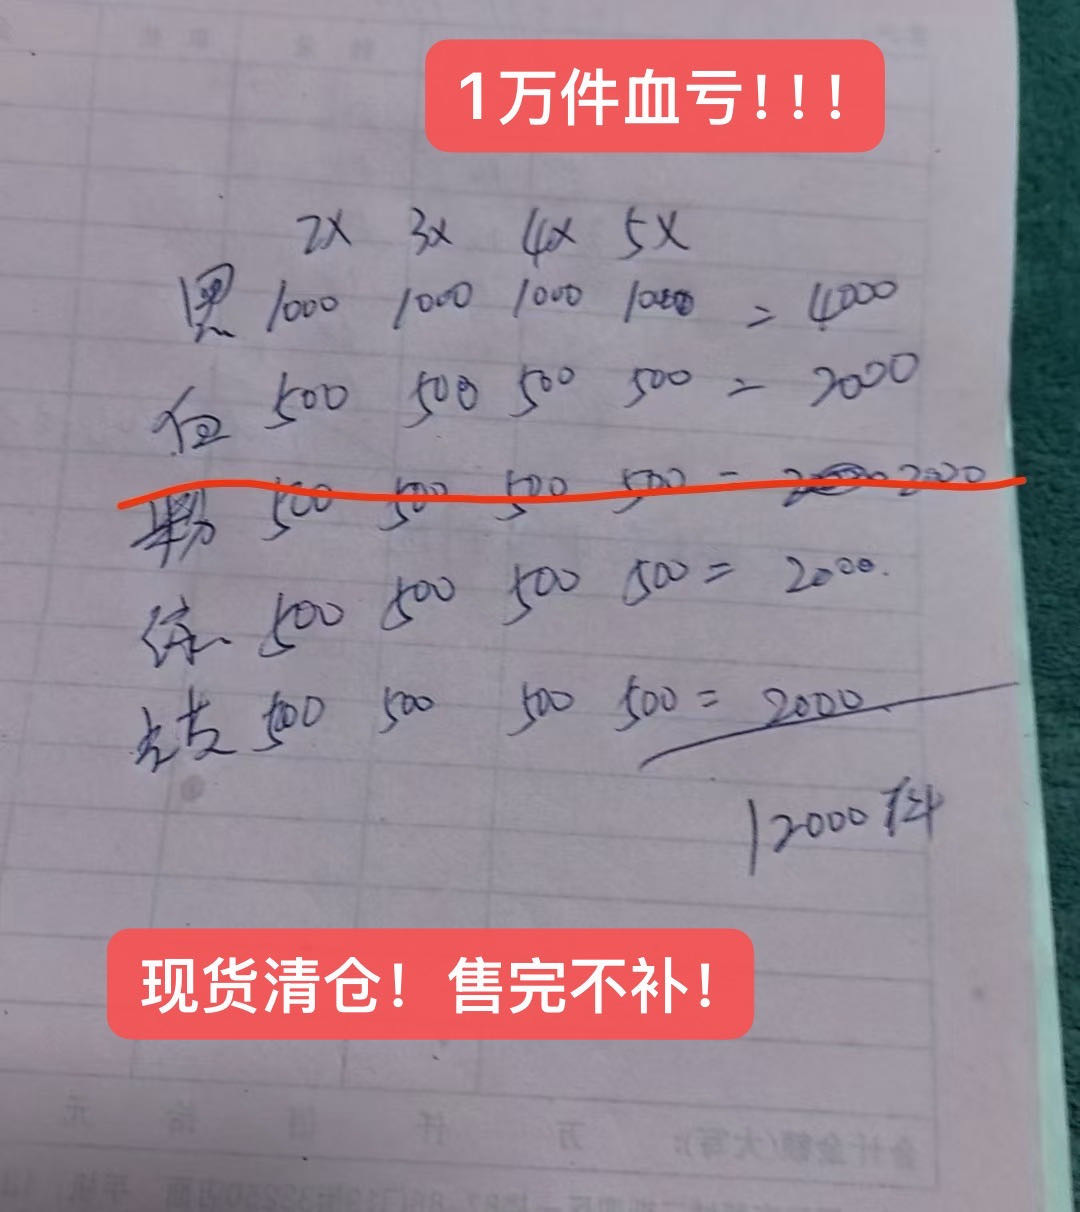 1万件血亏！！！
2X 3X 4X 5X
黑 1000 1000 1000 1000 = 4000
白 500 500 500 500 = 2000
500 500 500 500 = 2000
绿 500 500 500 500 = 2000
500 500 500 500 = 2000
12000件
现货清仓！售完不补！
合计金额(大写): 万 仟 佰 拾 元